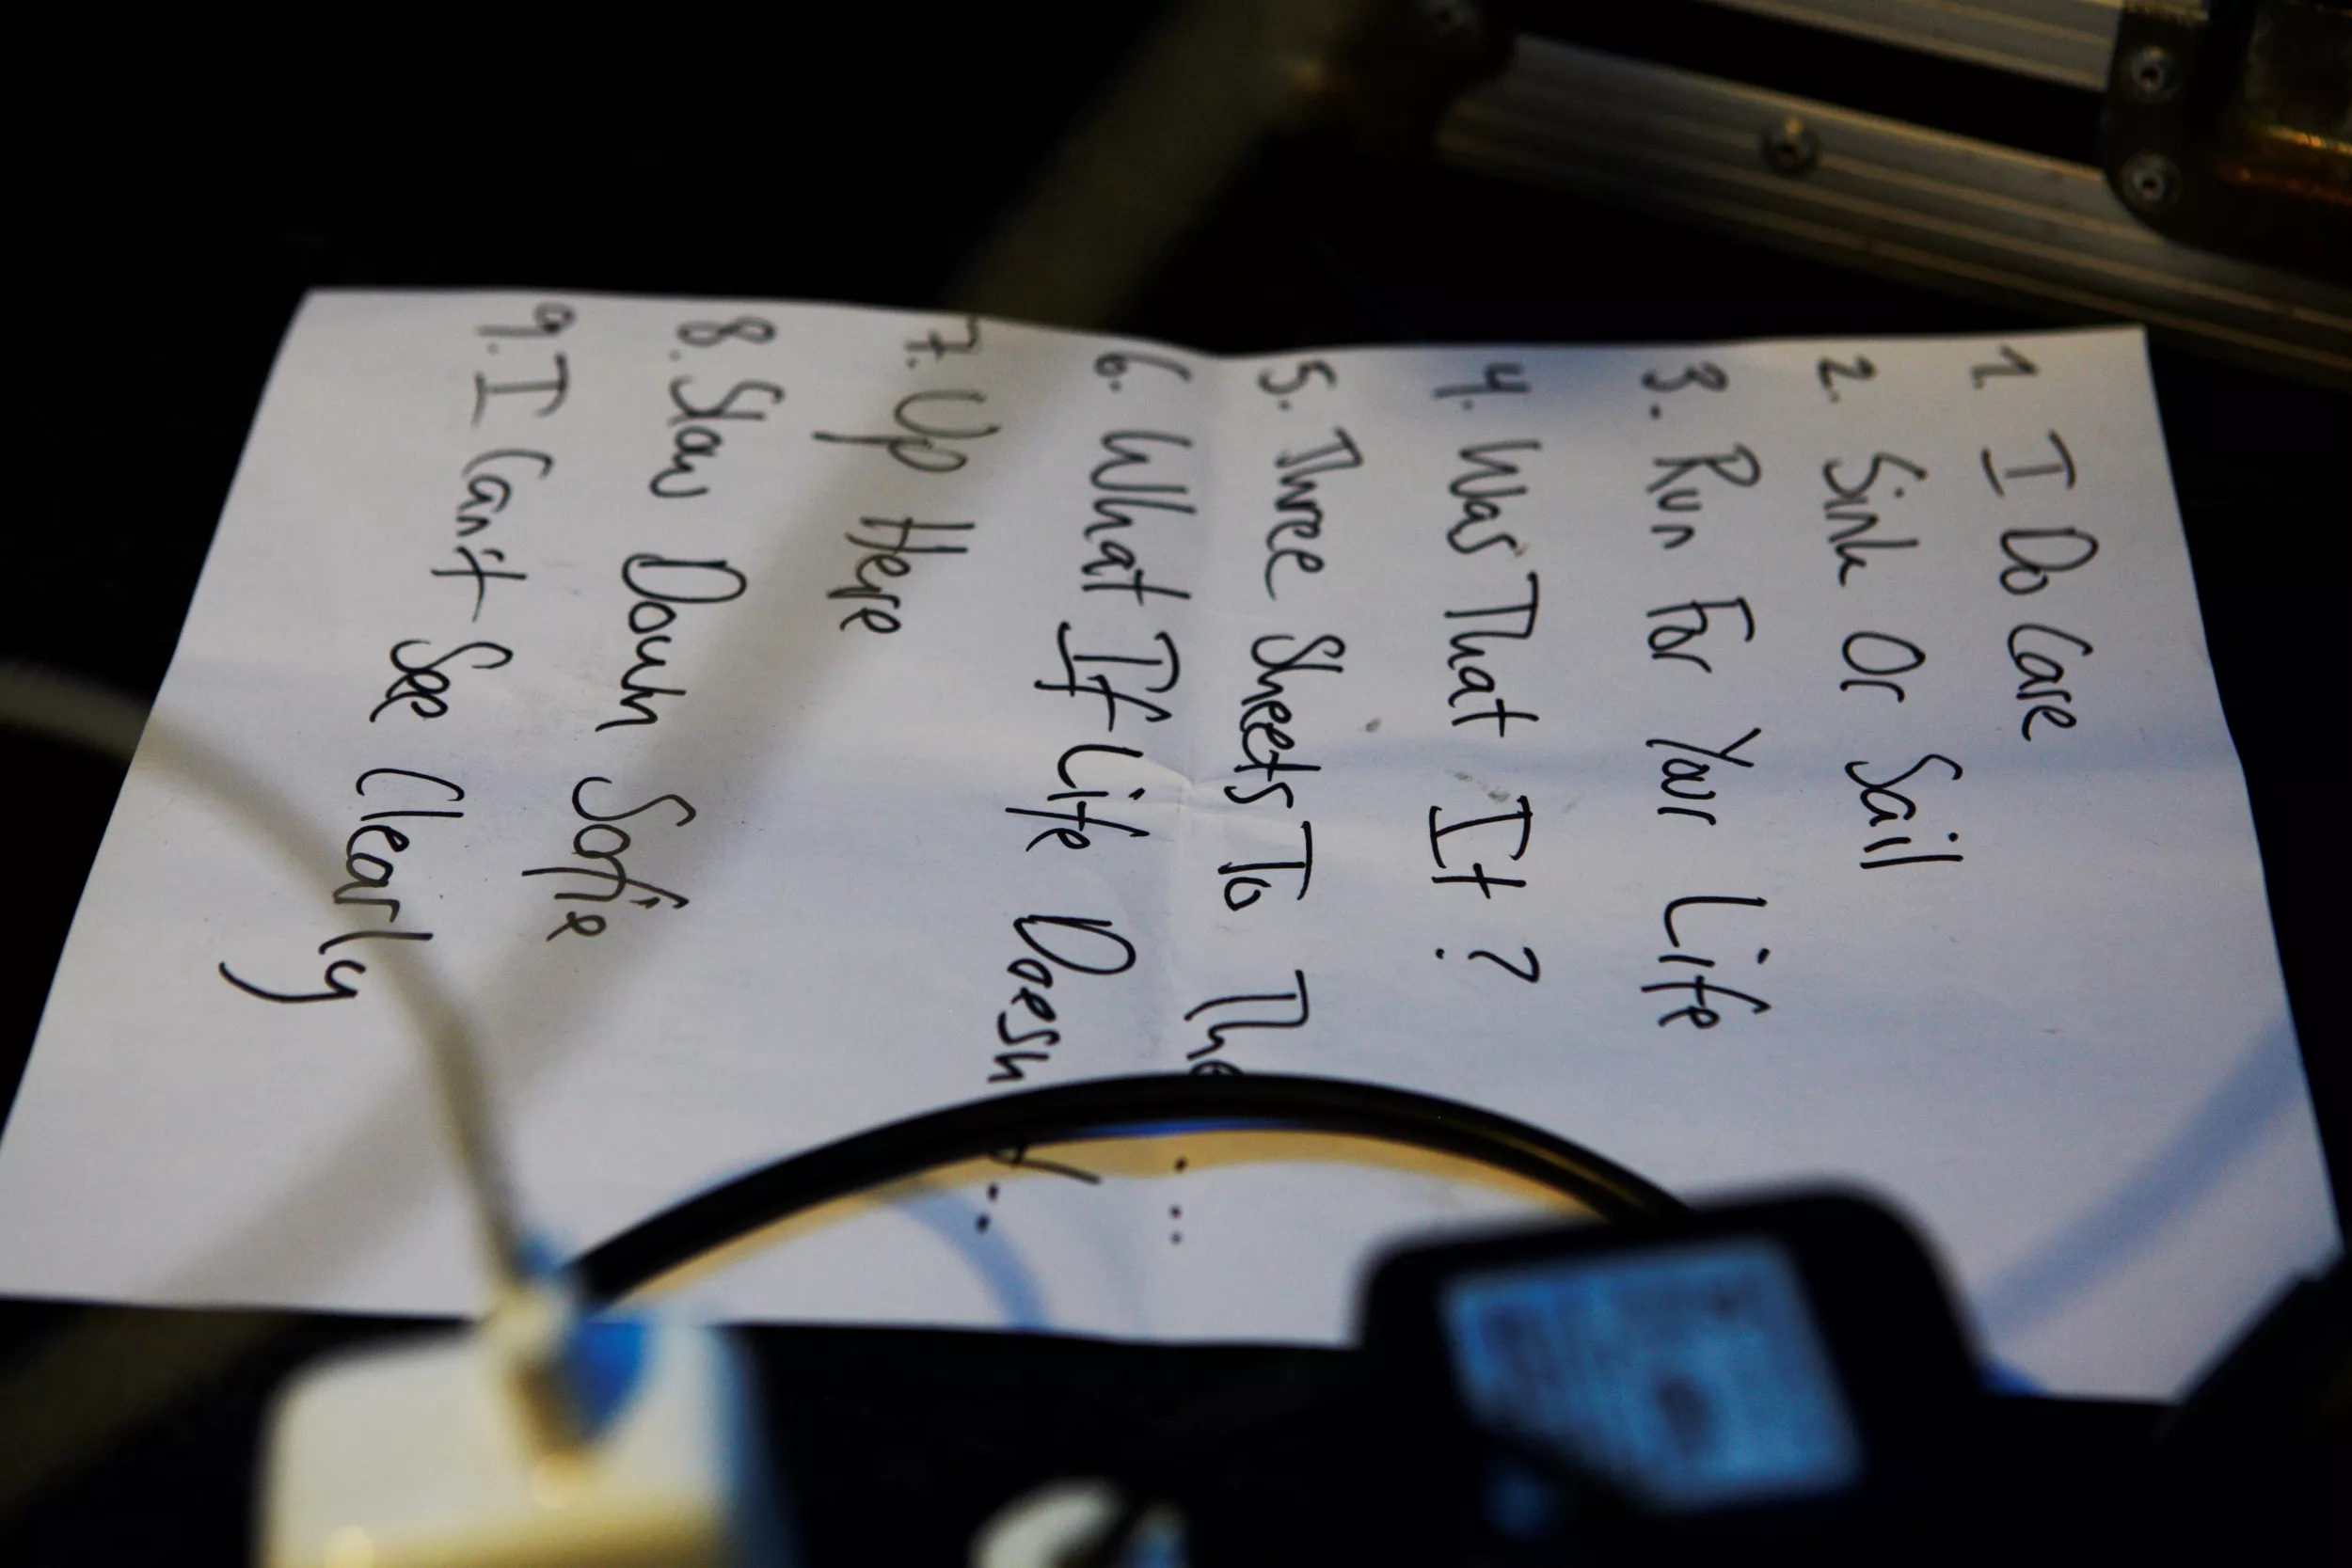 1. I Do Care
2. Sink Or Sail
3. Run For Your Life
4. Was That It?
5. Three Sheets To The ...
6. What If Life Doesn't...
7. Up Here
8. Slow Down Sofie
9. I Can't See Clearly